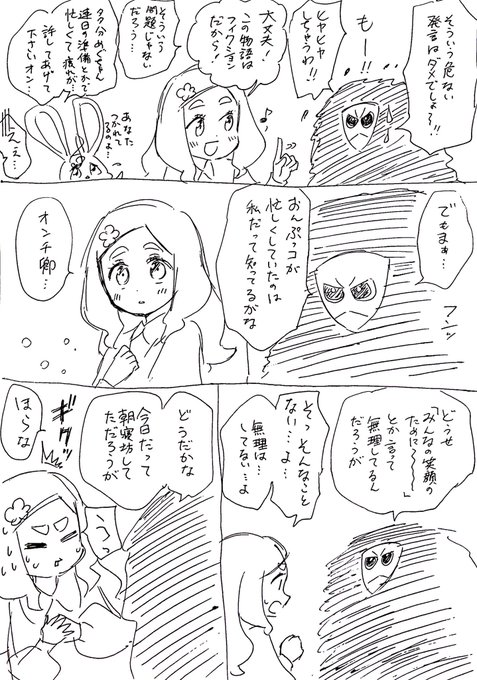 そういう危ない
発言はダメでしょー!!
もー!!
ヒヤヒヤ
しちゃうわ!!
大丈夫!
この物語は
フィクション
だから!
そういう
問題じゃない
だろう…
多分めぐちゃん
連日の準備とかで
忙しくて疲れが…
許してあげて
下さいオン…
あなた
つかれて
るのよ…
でもまぁ…
フンッ
おんぷっコが
忙しくしていたのは
私だって知ってるがな
オンチ卿…
どうせ
「みんなの笑顔の
ために〜〜」
とか言って
無理してるん
だろうが
そっそんなこと
ない…よ…
無理は…
してない…よ
どうだかな
今日だって
朝寝坊して
ただろうが
ギクッ
うっ
ほらな